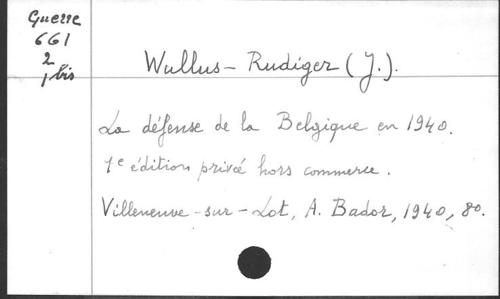 Guerre
661
2
1 bis
Wullus-Rudiger (J.).
La défense de la Belgique en 1940.
1e édition privée hors commerce.
Villeneuve-sur-Lot, A. Bador, 1940, 8o.